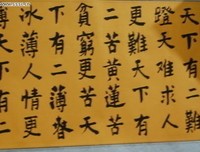 天下有二難
蹬天難求人
更難天下有
二苦黃蓮苦
貧窮更苦天
下有二薄春
冰薄人情更